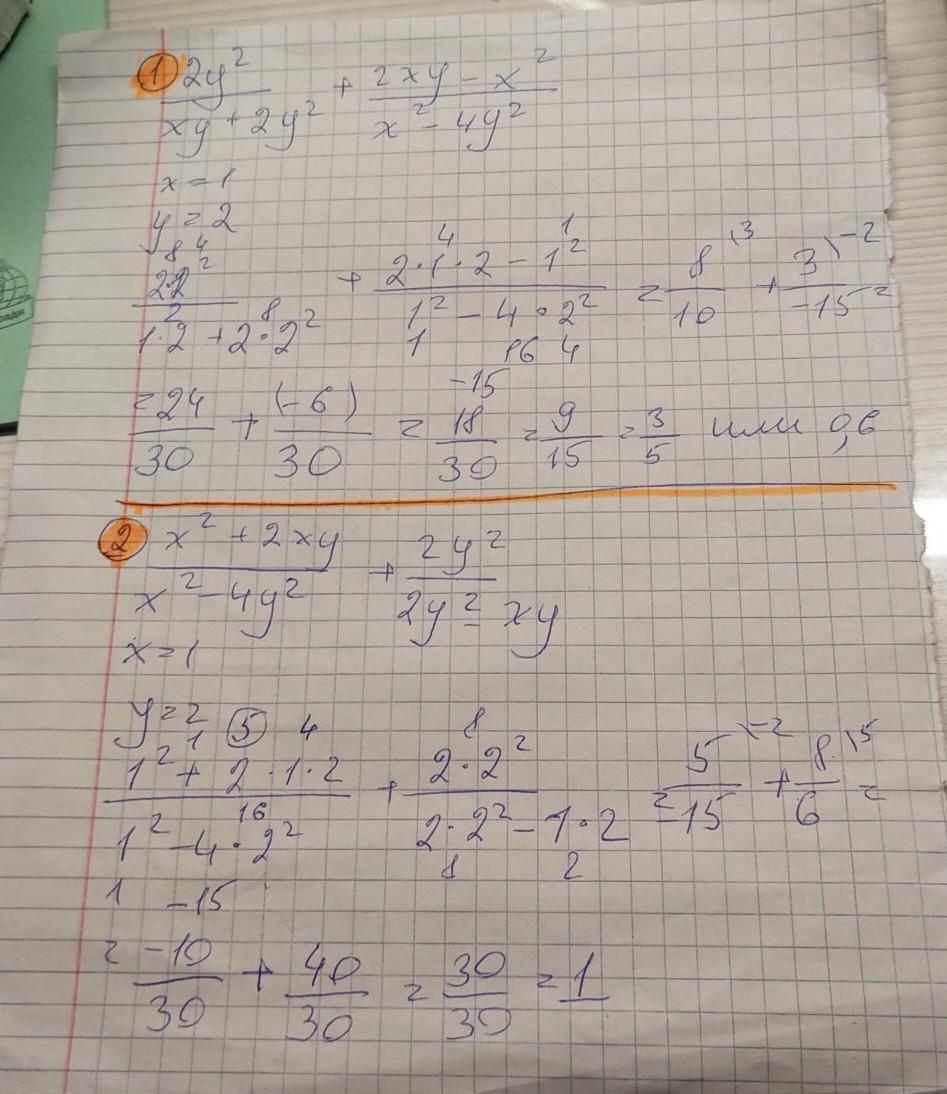 ① 2y²/(xy + 2y²) + (2xy − x²)/(x² − 4y²)
x = 1
y = 2
8 4 4 1
2·2²/(1·2 + 2·2²) + (2·1·2 − 1²)/(1² − 4·2²) = 8/10 \3 + 3/−15 \−2 =
2 8 1 16 4
−15
= 24/30 + (−6)/30 = 18/30 = 9/15 = 3/5 или 0,6
② (x² + 2xy)/(x² − 4y²) + 2y²/(2y² − xy)
x = 1
y = 2
1 5 4 8
(1² + 2·1·2)/(1² − 4·2²) + 2·2²/(2·2² − 1·2) = 5/−15 \−2 + 8/6 \5 =
16 8 2
1 −15
= −10/30 + 40/30 = 30/30 = 1